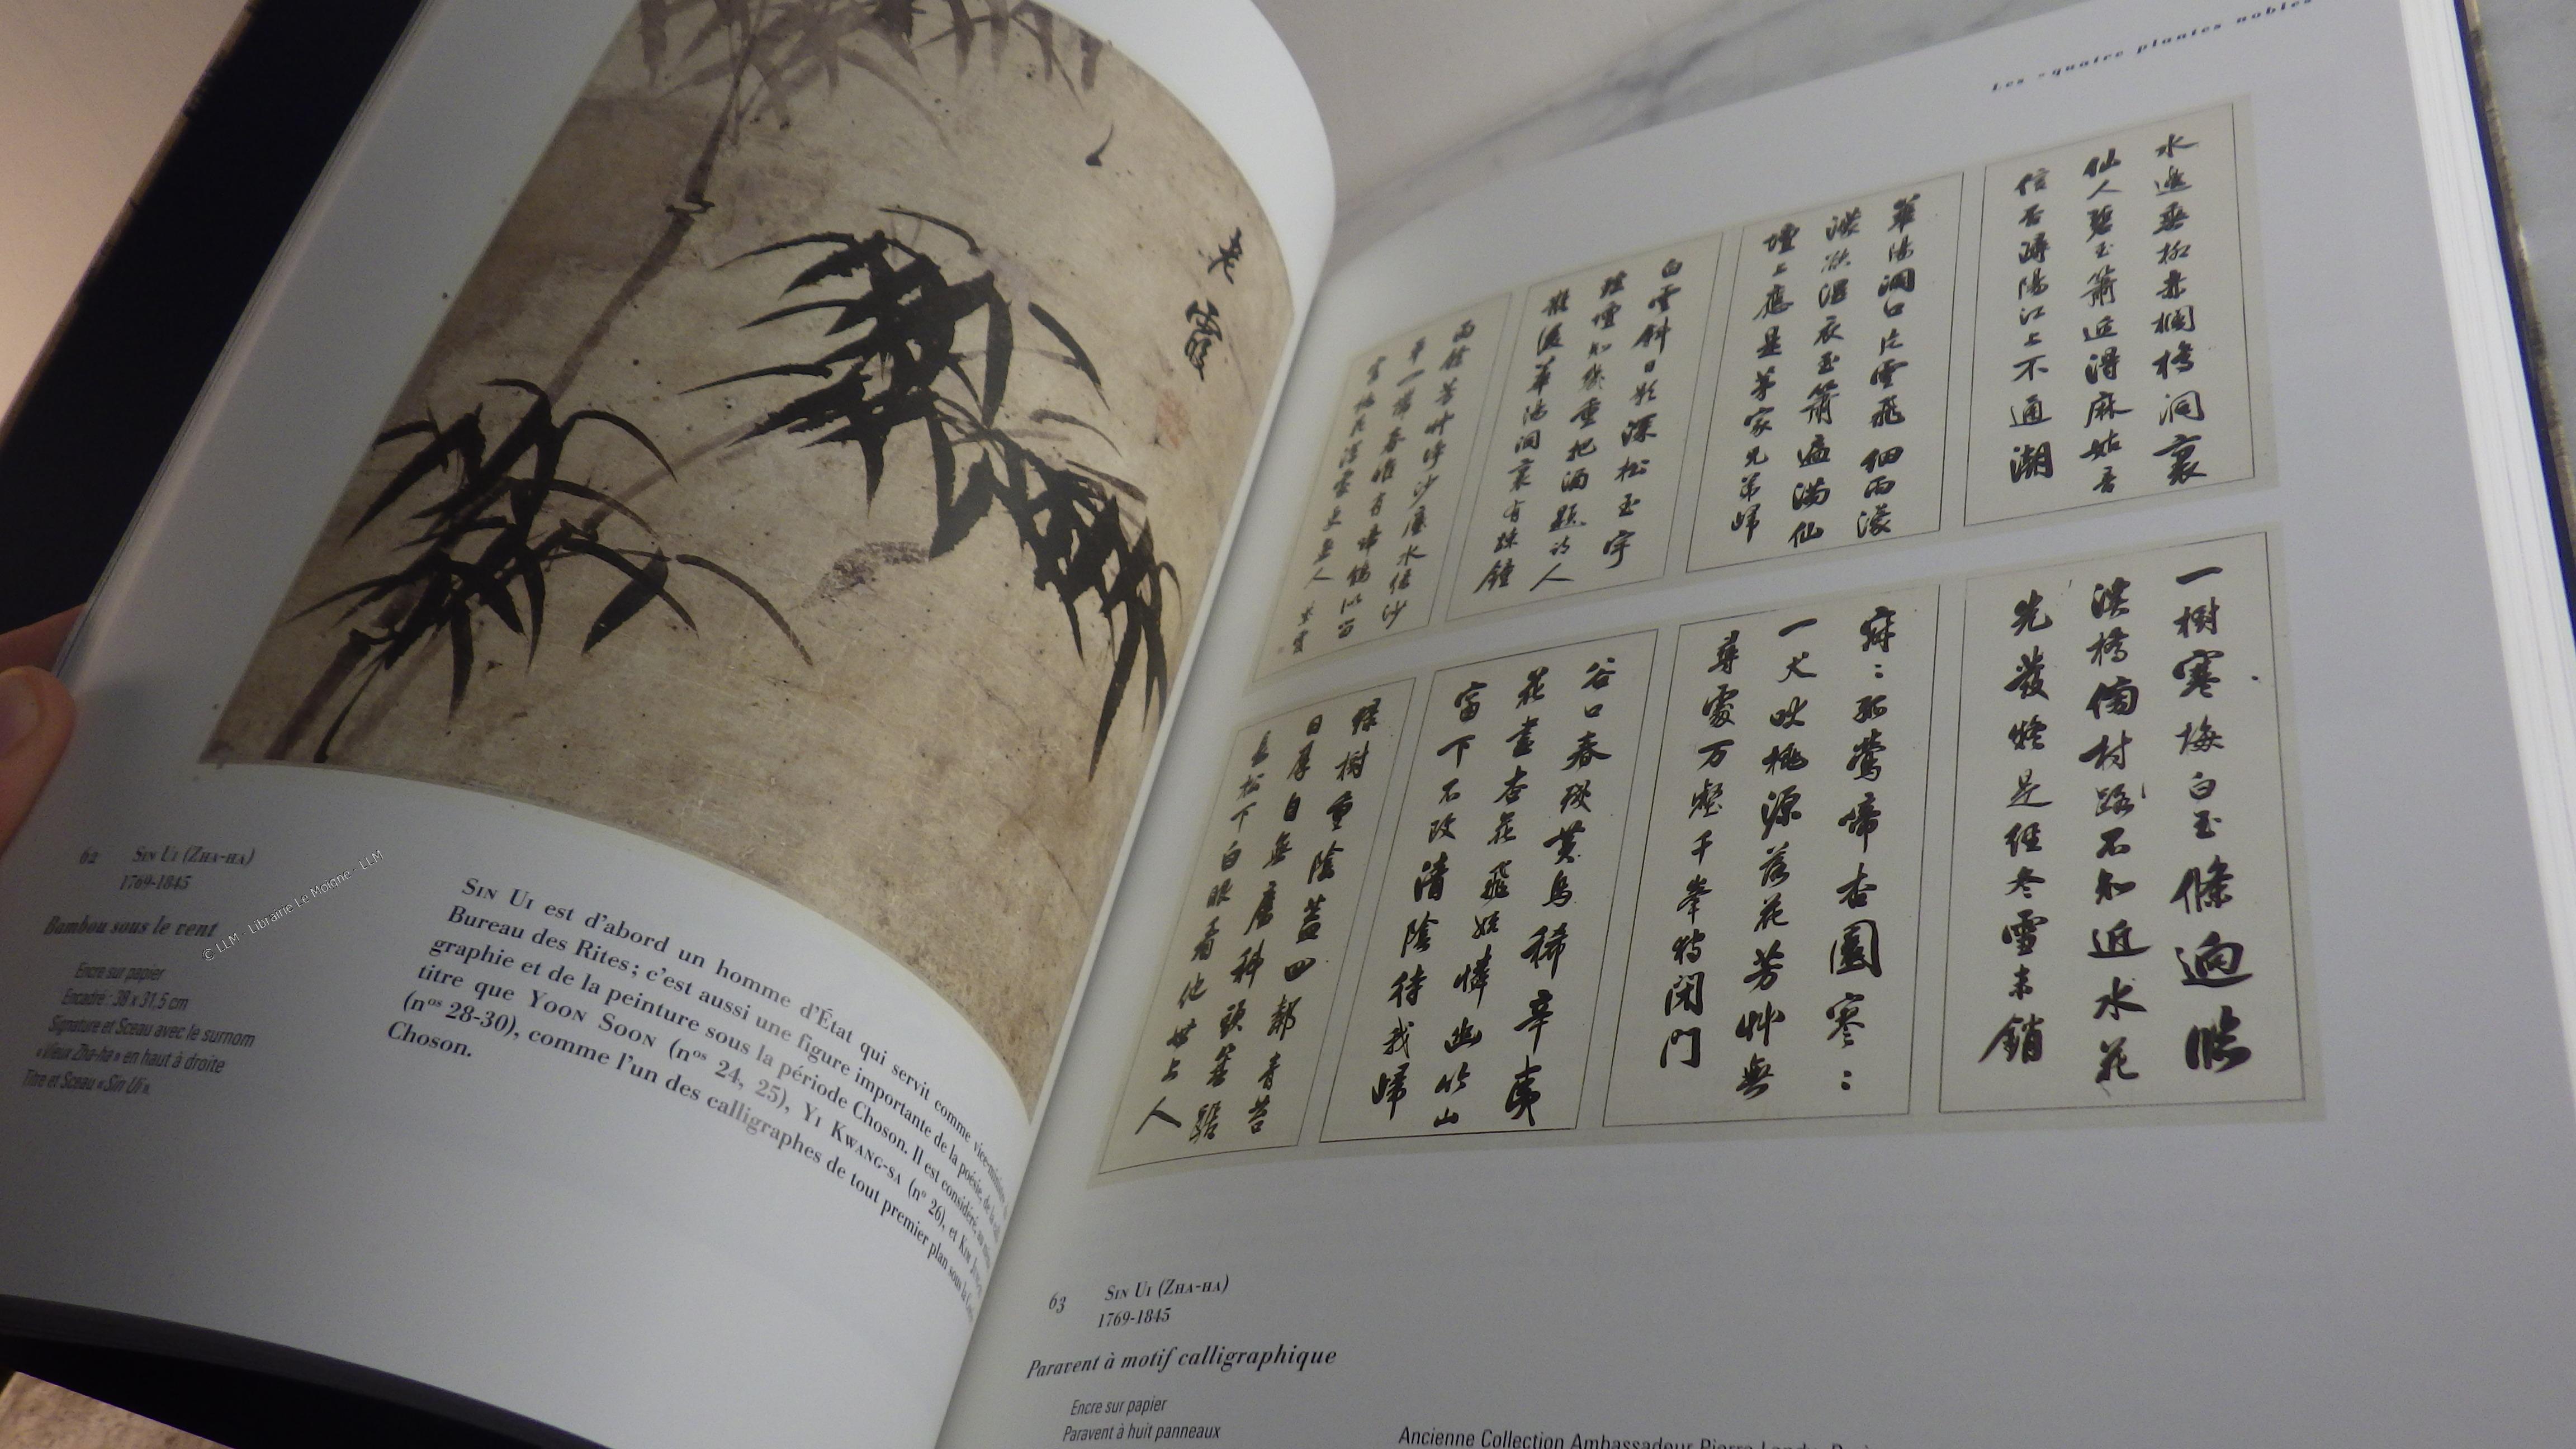 老霞
62 Sin Ui (Zha-ha)
1769-1845
Bambou sous le vent
Encre sur papier
Encadré : 38 x 31,5 cm
Signature et Sceau avec le surnom
« Vieux Zha-ha » en haut à droite
Titre et Sceau « Sin Ui ».
© LLM - Librairie Le Moigne - LLM
Sin Ui est d'abord un homme d'État qui servit comme vice-ministre
Bureau des Rites ; c'est aussi une figure importante de la poésie, de la
graphie et de la peinture sous la période Choson. Il est considéré, au
titre que Yoon Soon (nos 24, 25), Yi Kwang-sa (n° 26), et Kim
(nos 28-30), comme l'un des calligraphes de tout premier plan sous la
Choson.
Les « quatre plantes nobles
水邊垂柳赤欄橋洞裏
仙人碧玉簫近得麻姑音
信否潯陽江上不通潮
華陽洞口片雲飛細雨濛
濃欲濕衣玉簫遍滿仙
壇上應是茅家兄弟歸
白雲斜日影深松玉宇
瑤壇知幾重把酒題詩人
散後華陽洞裏有疎鐘
雨餘芳艸淨沙塵水綠沙
平一帶春唯有啼鵑似留
客桃花深處更無人 紫霞
一樹寒梅白玉條迥臨
溪橋傍村路不知近水花
先發疑是經冬雪未銷
寂〻孤鶯啼杏園寒〻
一犬吠桃源落花芳艸無
尋處万壑千峯獨閉門
谷口春殘黃鳥稀辛夷
花盡杏花飛始憐幽竹山
窗下不改清陰待我歸
綠樹重陰蓋四鄰青苔
日厚自無塵科頭箕踞
長松下白眼看他世上人
63 Sin Ui (Zha-ha)
1769-1845
Paravent à motif calligraphique
Encre sur papier
Paravent à huit panneaux
Ancienne Collection Ambassadeur Pierre Landy